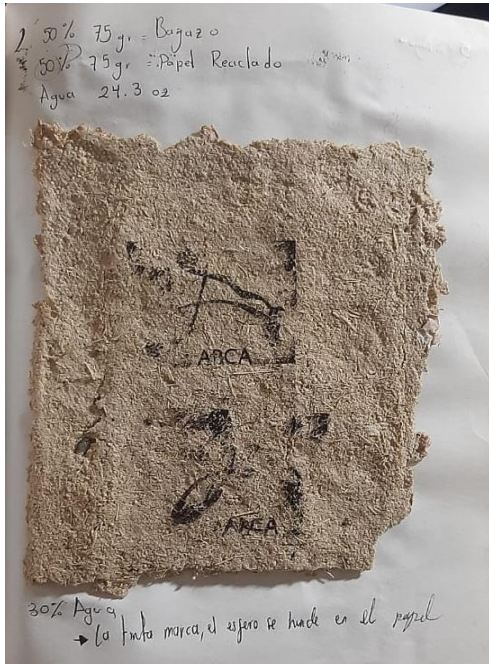 1 50% 75 gr = Bagazo
50% 75 gr = Papel Reciclado
Agua 24.3 oz
ARCA
ARCA
30% Agua
→ la tinta marca, el esfero se hunde en el papel